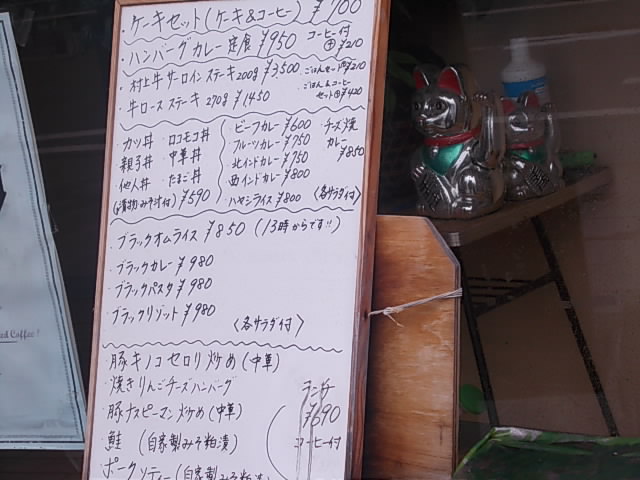 ・ケーキセット(ケーキ&コーヒー) ¥700
・ハンバーグカレー定食 ¥950 コーヒー付 ⊕¥210
・村上牛サーロインステーキ200g ¥3,500 ごはんセット⊕¥210
・牛ロースステーキ 270g ¥1450 ごはん&コーヒーセット⊕¥420
カツ丼 ロコモコ丼
親子丼 中華丼
他人丼 たまご丼
(漬物みそ汁付) ¥590
ビーフカレー ¥600
フルーツカレー ¥750
北インドカレー ¥750
西インドカレー ¥800
ハヤシライス ¥800
チーズ焼カレー ¥850
〈各サラダ付〉
・ブラックオムライス ¥850 (13時からです!!)
・ブラックカレー ¥980
・ブラックパスタ ¥980
・ブラックリゾット ¥980
〈各サラダ付〉
・豚キノコセロリ炒め(中華)
・焼きりんごチーズハンバーグ
・豚ナスピーマン炒め(中華)
・鮭 (自家製みそ粕漬)
・ポークソティー(自家製みそ粕漬)
ランチ
¥690
コーヒー付
ed Coffee!